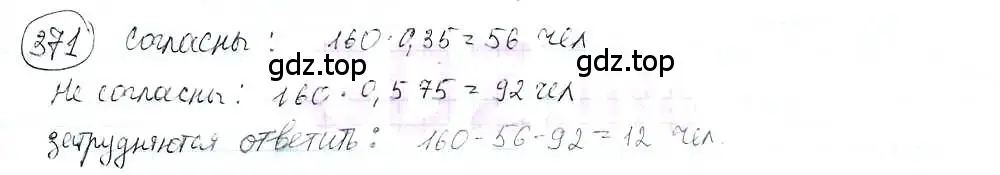 371 согласны: 160 · 0,35 = 56 чел
gdz.top gdz.top
Не согласны: 160 · 0,575 = 92 чел
затрудняются ответить: 160 - 56 - 92 = 12 чел.
gdz.top gdz.top